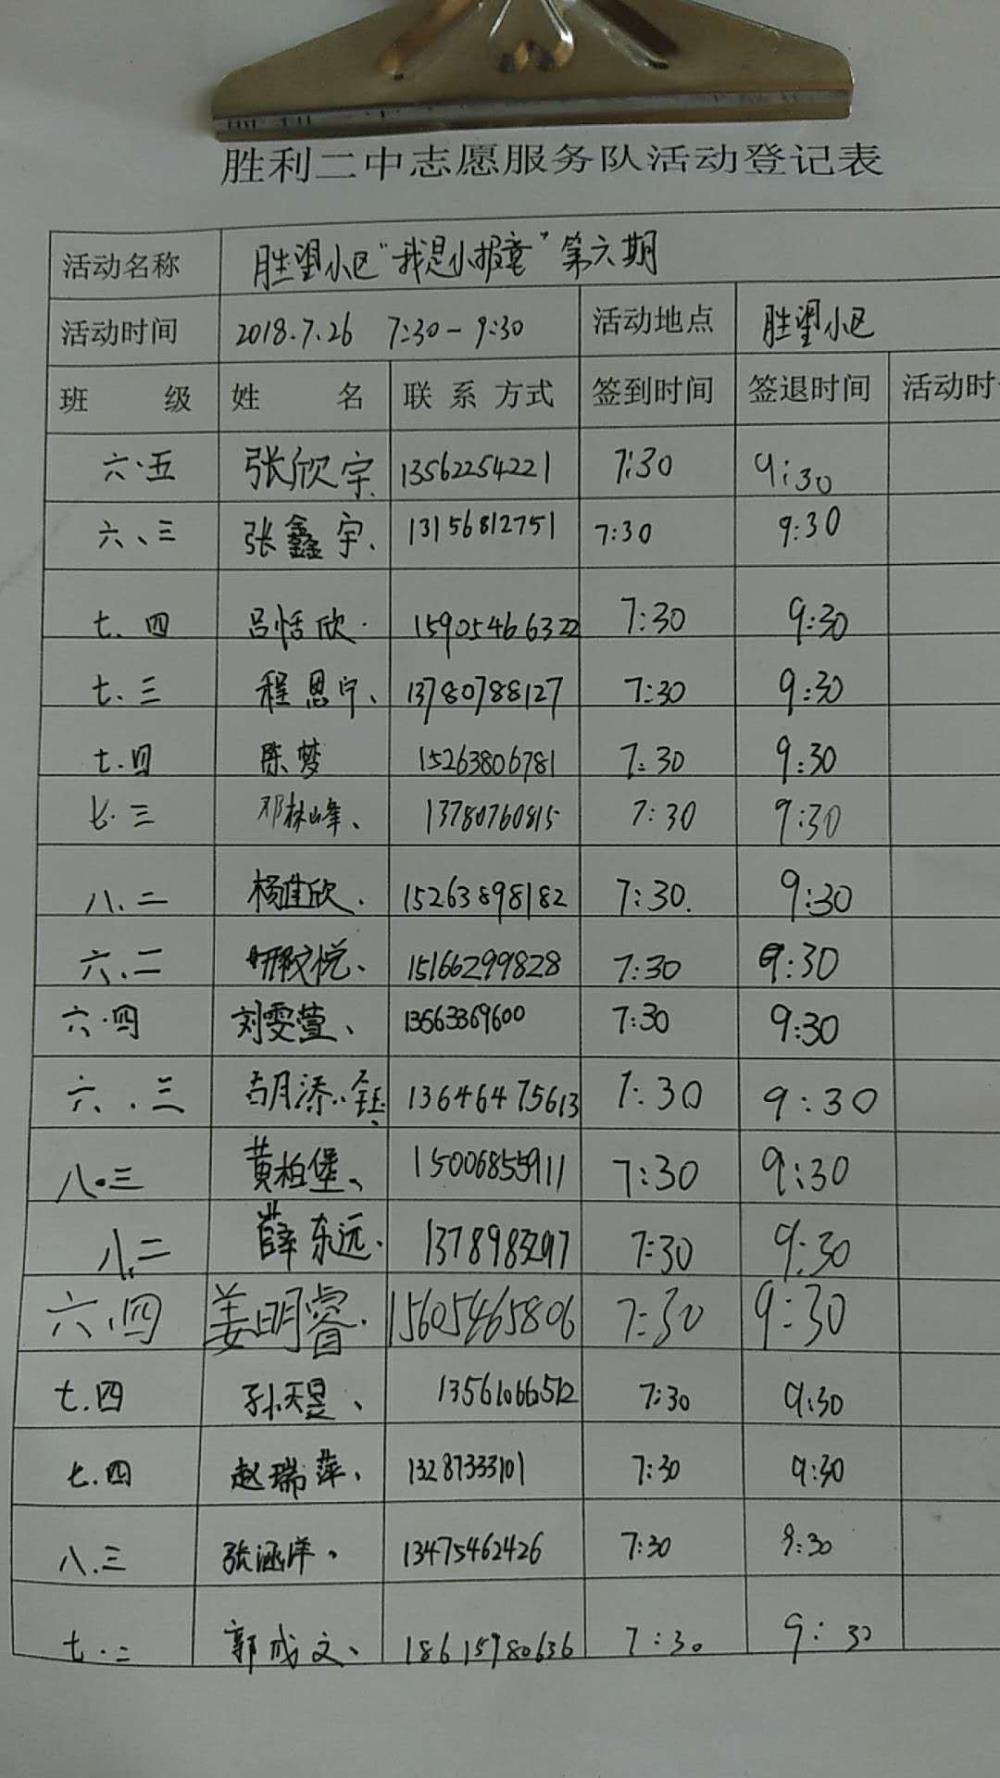 胜利二中志愿服务队活动登记表
活动名称 胜望小区“我是小报童”第六期
活动时间 2018.7.26 7:30-9:30 活动地点 胜望小区
班 级 姓 名 联系方式 签到时间 签退时间 活动时
六.五 张欣宇 13562254221 7:30 9:30
六、三 张鑫宇、 13156812751 7:30 9:30
七.四 吕恬欣. 15905466322 7:30 9:30
七.三 程恩宁、 13780788127 7:30 9:30
七.四 陈梦 15263806781 7:30 9:30
七.三 邓林峰、 13780760815 7:30 9:30
八.二 杨佳欣. 15263898182 7:30. 9:30
六.二 15166299828 7:30 9:30
六.四 刘雯萱、 13563369600 7:30 9:30
六.三 胡添钰 13646475613 7:30 9:30
八.三 黄柏堡、 15006855911 7:30 9:30
八.二 薛东远. 1378983297 7:30 9:30
六.四 姜明睿. 15605465806 7:30 9:30
七.四 孙天昱、 13561066512 7:30 9:30
七.四 赵瑞萍、 13287333101 7:30 9:30
八.三 张涵洋、 13475462426 7:30 9:30
七.二 郭成文、 18615780636 7:30 9:30